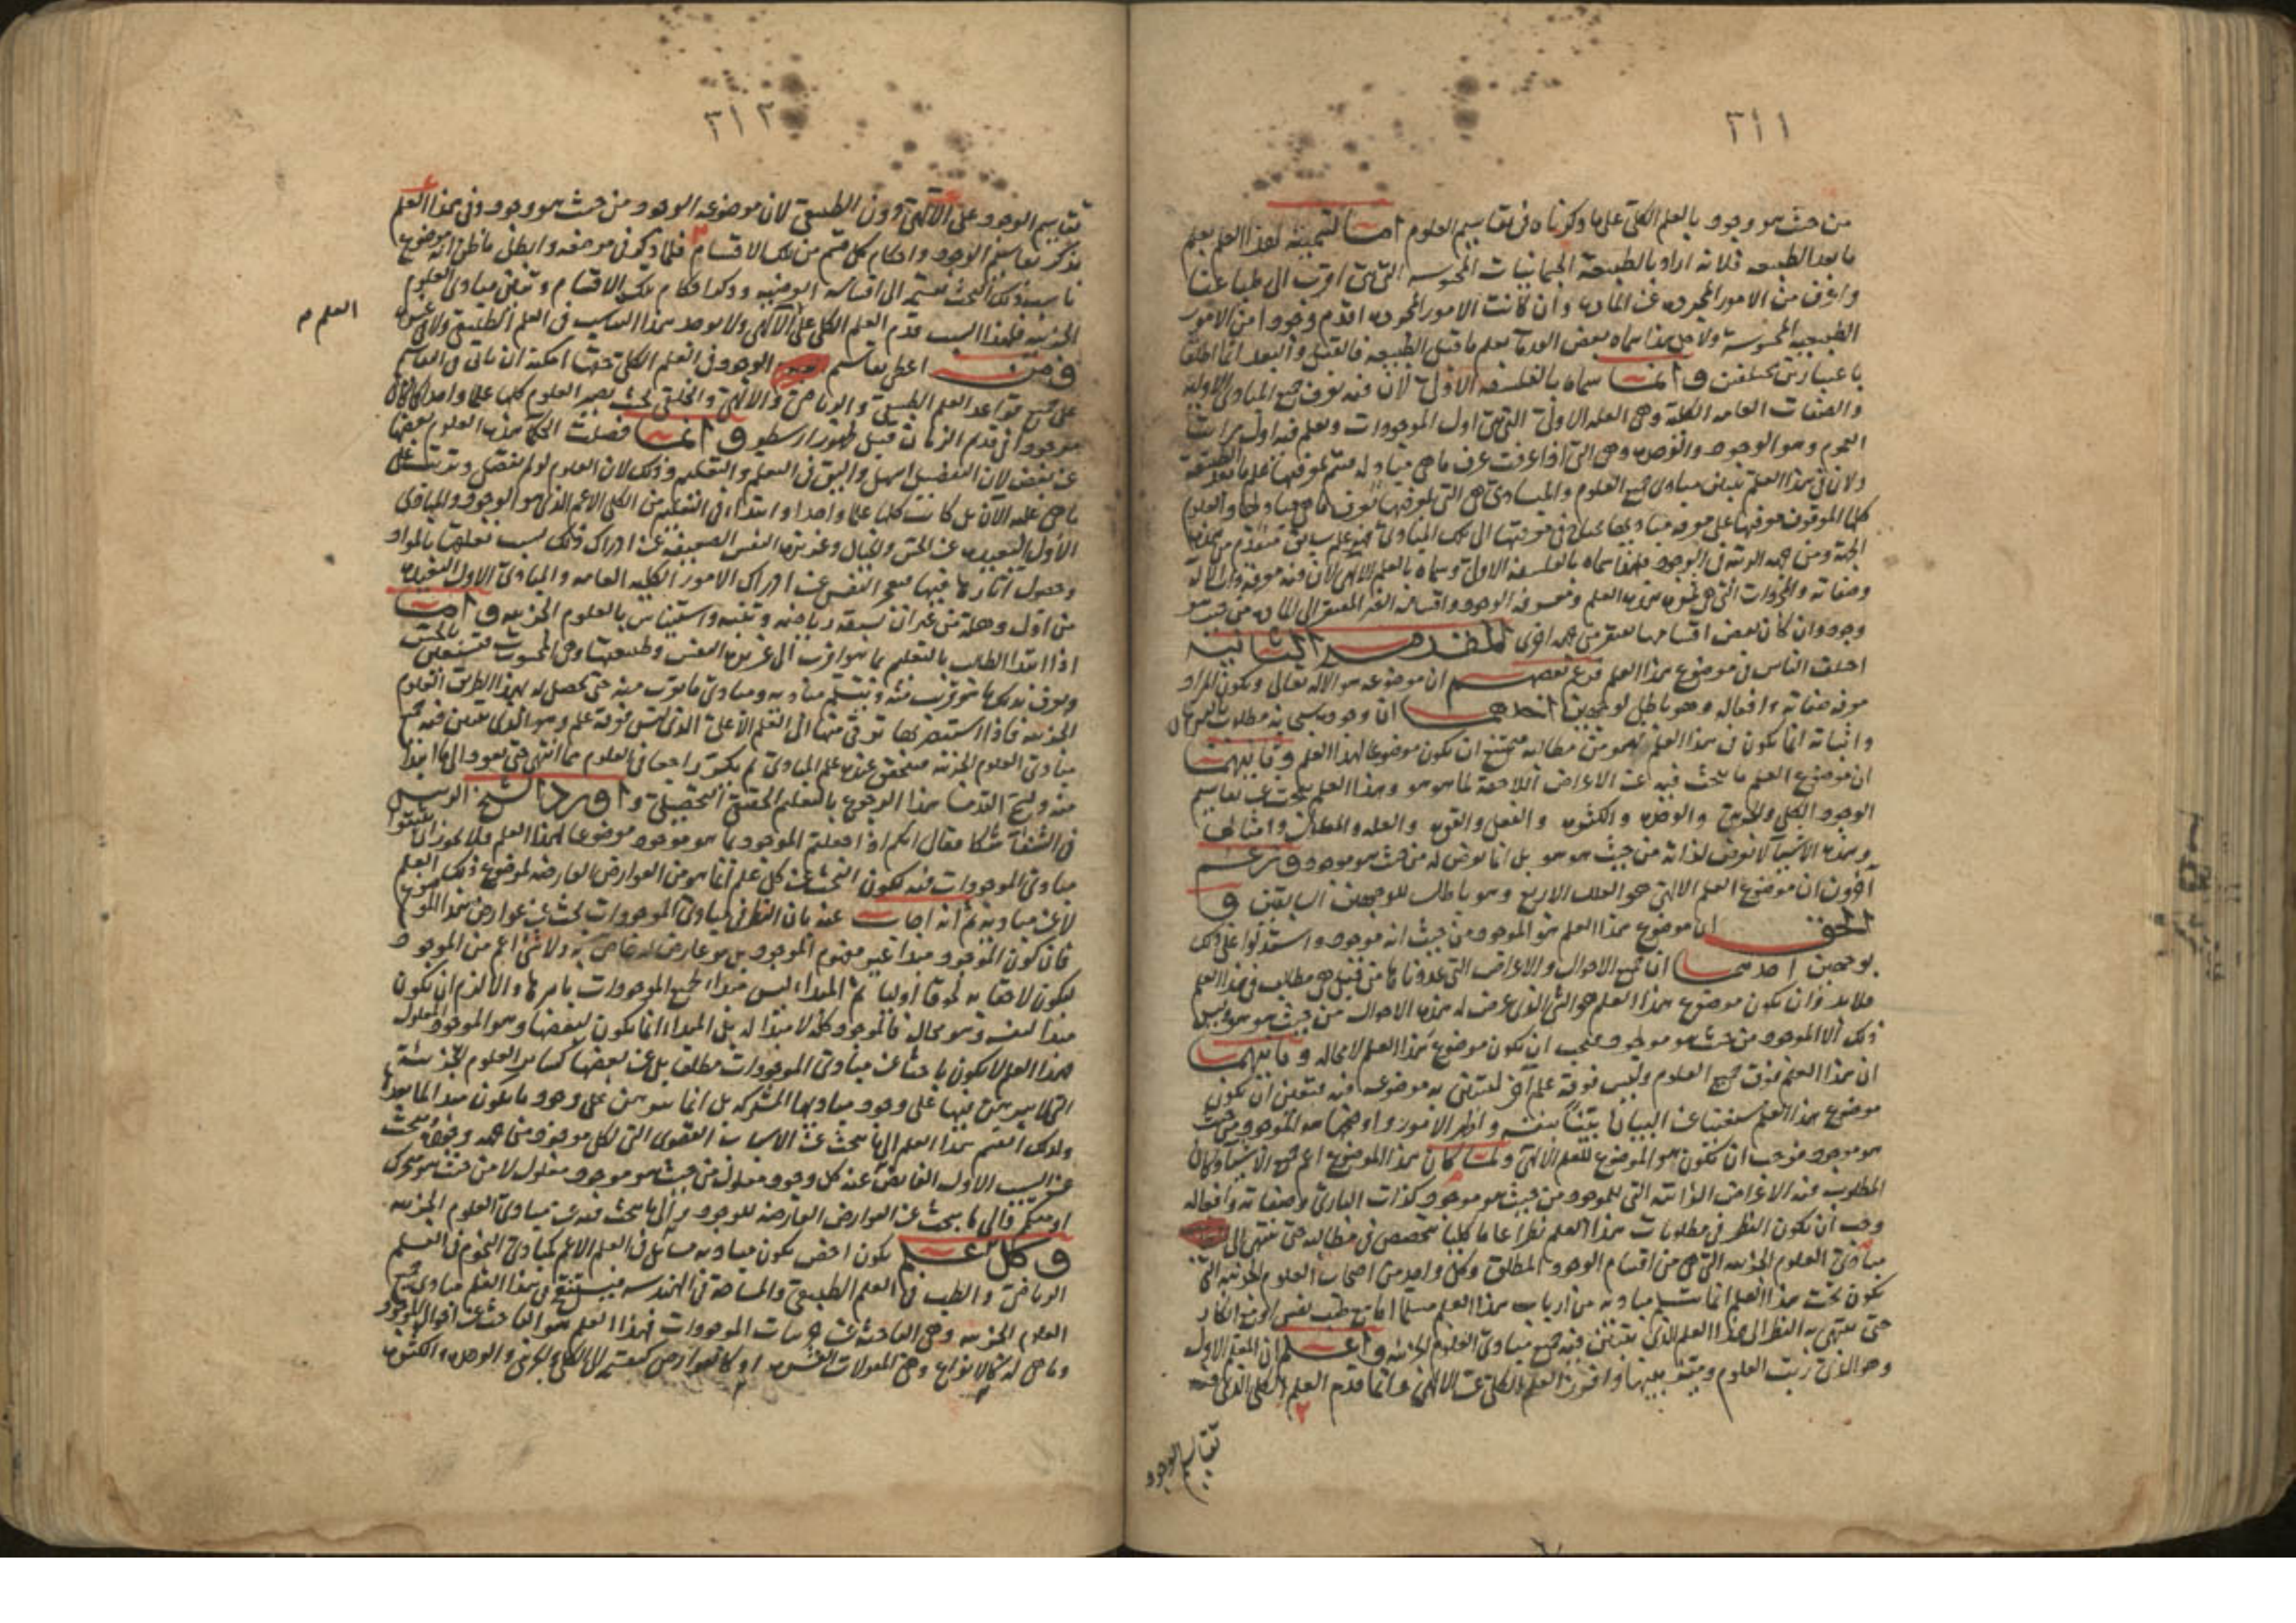 ٣١١
من حيث هو موجود بالعلم الكلي على ما ذكرناه في تقاسيم العلوم اما تسميته لهذا العلم بعلم
ما بعد الطبيعة فلانه اراد بالطبيعة الجسمانيات المحسوسة التي هي اقرب الى طباعنا
واعرف من الامور المجردة عن المادة وان كانت الامور المجردة اقدم وجودا من الامور
الطبيعية المحسوسة ولاجل هذا سماه بعض القدماء بعلم ما قبل الطبيعة فالقبل والبعد انما اطلقا
باعتبارين مختلفين وانما سماه بالفلسفة الاولى لان فيه يعرف جميع المبادئ الاولية
والصفات العامة الكلية وهي العلة الاولى التي هي اول الموجودات ويعلم فيه اول مراتب
العموم وهو الوجود والوحدة وهي التي اذا عرفت عرف ما هي مباد له فيتم بمعرفتها علم ما بعد الطبيعة
ولان في هذا العلم يتبين مبادئ جميع العلوم والمبادئ هي التي بمعرفتها تعرف ما هي مباد لها والعلوم
كلها الموقوف معرفتها على معرفة مباديها تحتاج في معرفتها الى تلك المبادئ فهو علم سابق متقدم من هذه
الجهة ومن جهة الرتبة في الوجود فلهذا سماه بالفلسفة الاولى وسماه بالعلم الالهي لان فيه معرفة ذات الاله
وصفاته والمجردات التي هي ثمرة هذا العلم ومعرفة الوجود واقسامه الغير المفتقر الى المادة من حيث هو
وجود وان كان بعض اقسامها يفتقر من جهة اخرى المقدمة الثانية
اختلف الناس في موضوع هذا العلم فزعم بعضهم ان موضوعه هو الاله تعالى ويكون المراد
معرفة صفاته وافعاله وهو باطل لوجهين احدهما ان وجوده سبحانه مطلوب بالبرهان
واثباته انما يكون في هذا العلم فهو من مطالبه فيمتنع ان يكون موضوعا لهذا العلم وثانيهما
ان موضوع العلم ما يبحث فيه عن الاعراض اللاحقة لما هو هو وهذا العلم يبحث عن تقاسيم
الوجود الكلي والجزئي والوحدة والكثرة والفعل والقوة والعلة والمعلول وامثالها
وهذه الاشياء لا تعرض لذاته من حيث هو هو بل انما تعرض له من حيث هو موجود وزعم
آخرون ان موضوع العلم الالهي هو العلل الاربع وهو باطل للوجهين السابقين و
الحق ان موضوع هذا العلم هو الموجود من حيث انه موجود واستدلوا على ذلك
بوجهين احدهما ان جميع الاحوال والاعراض التي عددناها من قبل هي مطالب في هذا العلم
فلا بد وان يكون موضوع هذا العلم هو الشيء الذي عرض له هذه الاحوال من حيث هو هو وليس
ذلك الا الموجود من حيث هو موجود فيجب ان يكون موضوع هذا العلم لا محالة وثانيهما
ان هذا العلم فوق جميع العلوم وليس فوقه علم آخر ليتبين به موضوعه فيه فيتعين ان يكون
موضوع هذا العلم مستغنيا عن البيان بينا بنفسه واظهر الامور واوضحها هو الموجود من حيث
هو موجود فوجب ان يكون هو الموضوع للعلم الالهي ولما كان هذا الموضوع اعم جميع الاشياء وكان
المطلوب فيه الاعراض الذاتية التي للموجود من حيث هو موجود كذات البارئ وصفاته وافعاله
وجب ان يكون النظر في مطلوبات هذا العلم نظرا عاما كليا يتخصص في مطالبه حتى ينتهي الى
مبادئ العلوم الجزئية التي هي من اقسام الوجود المطلق وكل واحد من اصحاب العلوم الجزئية التي
يكون تحت هذا العلم انما يتسلم مباديه من ارباب هذا العلم مسلما اما مع طيب نفس او مع انكار
حتى ينتهي به النظر الى هذا العلم الذي يتبين فيه جميع مبادئ العلوم الجزئية واعلم ان المعلم الاول
وهو الذي رتب العلوم وميز بينها وافرز العلم الكلي عن الالهي وانما قدم العلم الكلي الذي فيه
تقاسيم الوجود
٣١٢
تقاسيم الوجود على الالهي دون الطبيعي لان موضوعه الوجود من حيث هو وجود وفي هذا العلم
يذكر تقاسيم الوجود واحكام كل قسم من تلك الاقسام فلما ذكر في موضعه وابطل ما ظن انه موضوع
ناسب ذلك البحث قسمته الى اقسامه الموضوعية وذكر احكام تلك الاقسام وتبين مبادئ العلوم
الجزئية فلهذا السبب قدم العلم الكلي على الالهي ولا يوجد هذا المناسب في العلم الطبيعي ولا في غيره
العلم م
ومن اعطى تقاسيم الوجود في العلم الكلي حقها امكنه ان ياتي في التقاسيم
على جميع قواعد العلم الطبيعي والرياضي والالهي والخلقي بحيث يصير العلوم كلها علما واحدا كما كان
موجودا في قديم الزمان قبل ظهور ارسطو وانما فصلت الحكماء هذه العلوم بعضها
عن بعض لان التفصيل اسهل واليق في التعلم والتعليم وذلك لان العلوم لو لم تفصل وترتب على
ما هي عليه الآن بل كانت كلها علما واحدا وابتداء في التعليم من الكلي الاعم الذي هو الوجود والمبادئ
الاول البعيدة عن الحس والخيال وغريزة النفس الضعيفة عن ادراك ذلك بسبب تعلقها بالمواد
وحصول آثارها فيها فيعجز النفس عن ادراك الامور الكلية العامة والمبادئ الاول البعيدة
من اول وهلة من غير ان تسبقه رياضة وتنبيه واستيناس بالعلوم الجزئية واما
اذا ابتدا الطالب بالتعلم بما هو اقرب الى غريزة النفس وطبيعتها وهي المحسوسات فيستعين بالحس
ويعرف بذلك ما هو قريب منه ويتسلم مباديه ومبادئ ما يقرب منه حتى يحصل له بهذا الطريق العلوم
الجزئية فاذا استبصر بها ترقى منها الى العلم الاعلى الذي ليس فوقه علم وهو الذي يتبين فيه جميع
مبادئ العلوم الجزئية فيتحقق عنده علم المبادئ ثم يكر راجعا في العلوم مما انتهى حتى يعود الى ما ابتدا
منه وليسم القدماء هذا الرجوع بالتعليم الحقيقي التحصيلي واورد الشيخ الرئيس
في الشفاء شكا فقال انكم اذا جعلتم الموجود بما هو موجود موضوعا لهذا العلم فلا يجوز ان تثبتوا
مبادئ الموجودات فيه لكون البحث عن كل علم انما هو من العوارض العارضة لموضوع ذلك العلم
لا عن مباديه ثم انه اجاب عنه بان النظر في مبادئ الموجودات بحث عن عوارض هذا الموضوع
فان كون الموجود مبدا غير مقوم للموجود بل هو عارض له خاص به ولا شيء اعم من الموجود
ليكون لاحقا به لحوقا اوليا ثم المبدا ليس مبدا لجميع الموجودات باسرها والا لزم ان يكون
مبدا لنفسه وهو محال فالموجود كله لا مبدا له بل المبدا انما يكون لبعضها وهو الموجود المعلول
فهذا العلم لا يكون باحثا عن مبادئ الموجودات مطلقا بل عن بعضها كسائر العلوم الجزئية
التي لا يبرهن فيها على وجود مباديها المشتركة بل انما يبرهن على وجود ما يكون مبدا لما بعدها
ولذلك انقسم هذا العلم الى ما يبحث عن الاسباب القصوى التي لكل موجود من جهة وجوده ويبحث
عن السبب الاول الفائض عنه كل وجود معلول من حيث هو موجود معلول لا من حيث هو متحرك
او متكمم والى ما يبحث عن العوارض العارضة للوجود والى ما يبحث فيه عن مبادئ العلوم الجزئية
وكل علم يكون اخص يكون مباديه مسائل في العلم الاعم كمبادئ النجوم في العلم
الرياضي والطب في العلم الطبيعي والمساحة في الهندسة فيتبين في هذا العلم مبادئ جميع
العلوم الجزئية وهي الباحثة عن جزئيات الموجودات فهذا العلم هو الباحث عن احوال الموجود
وما هي له كالانواع وهي المقولات العشرة او كالعوارض كقسمته الى الكلي والجزئي والوحدة والكثرة